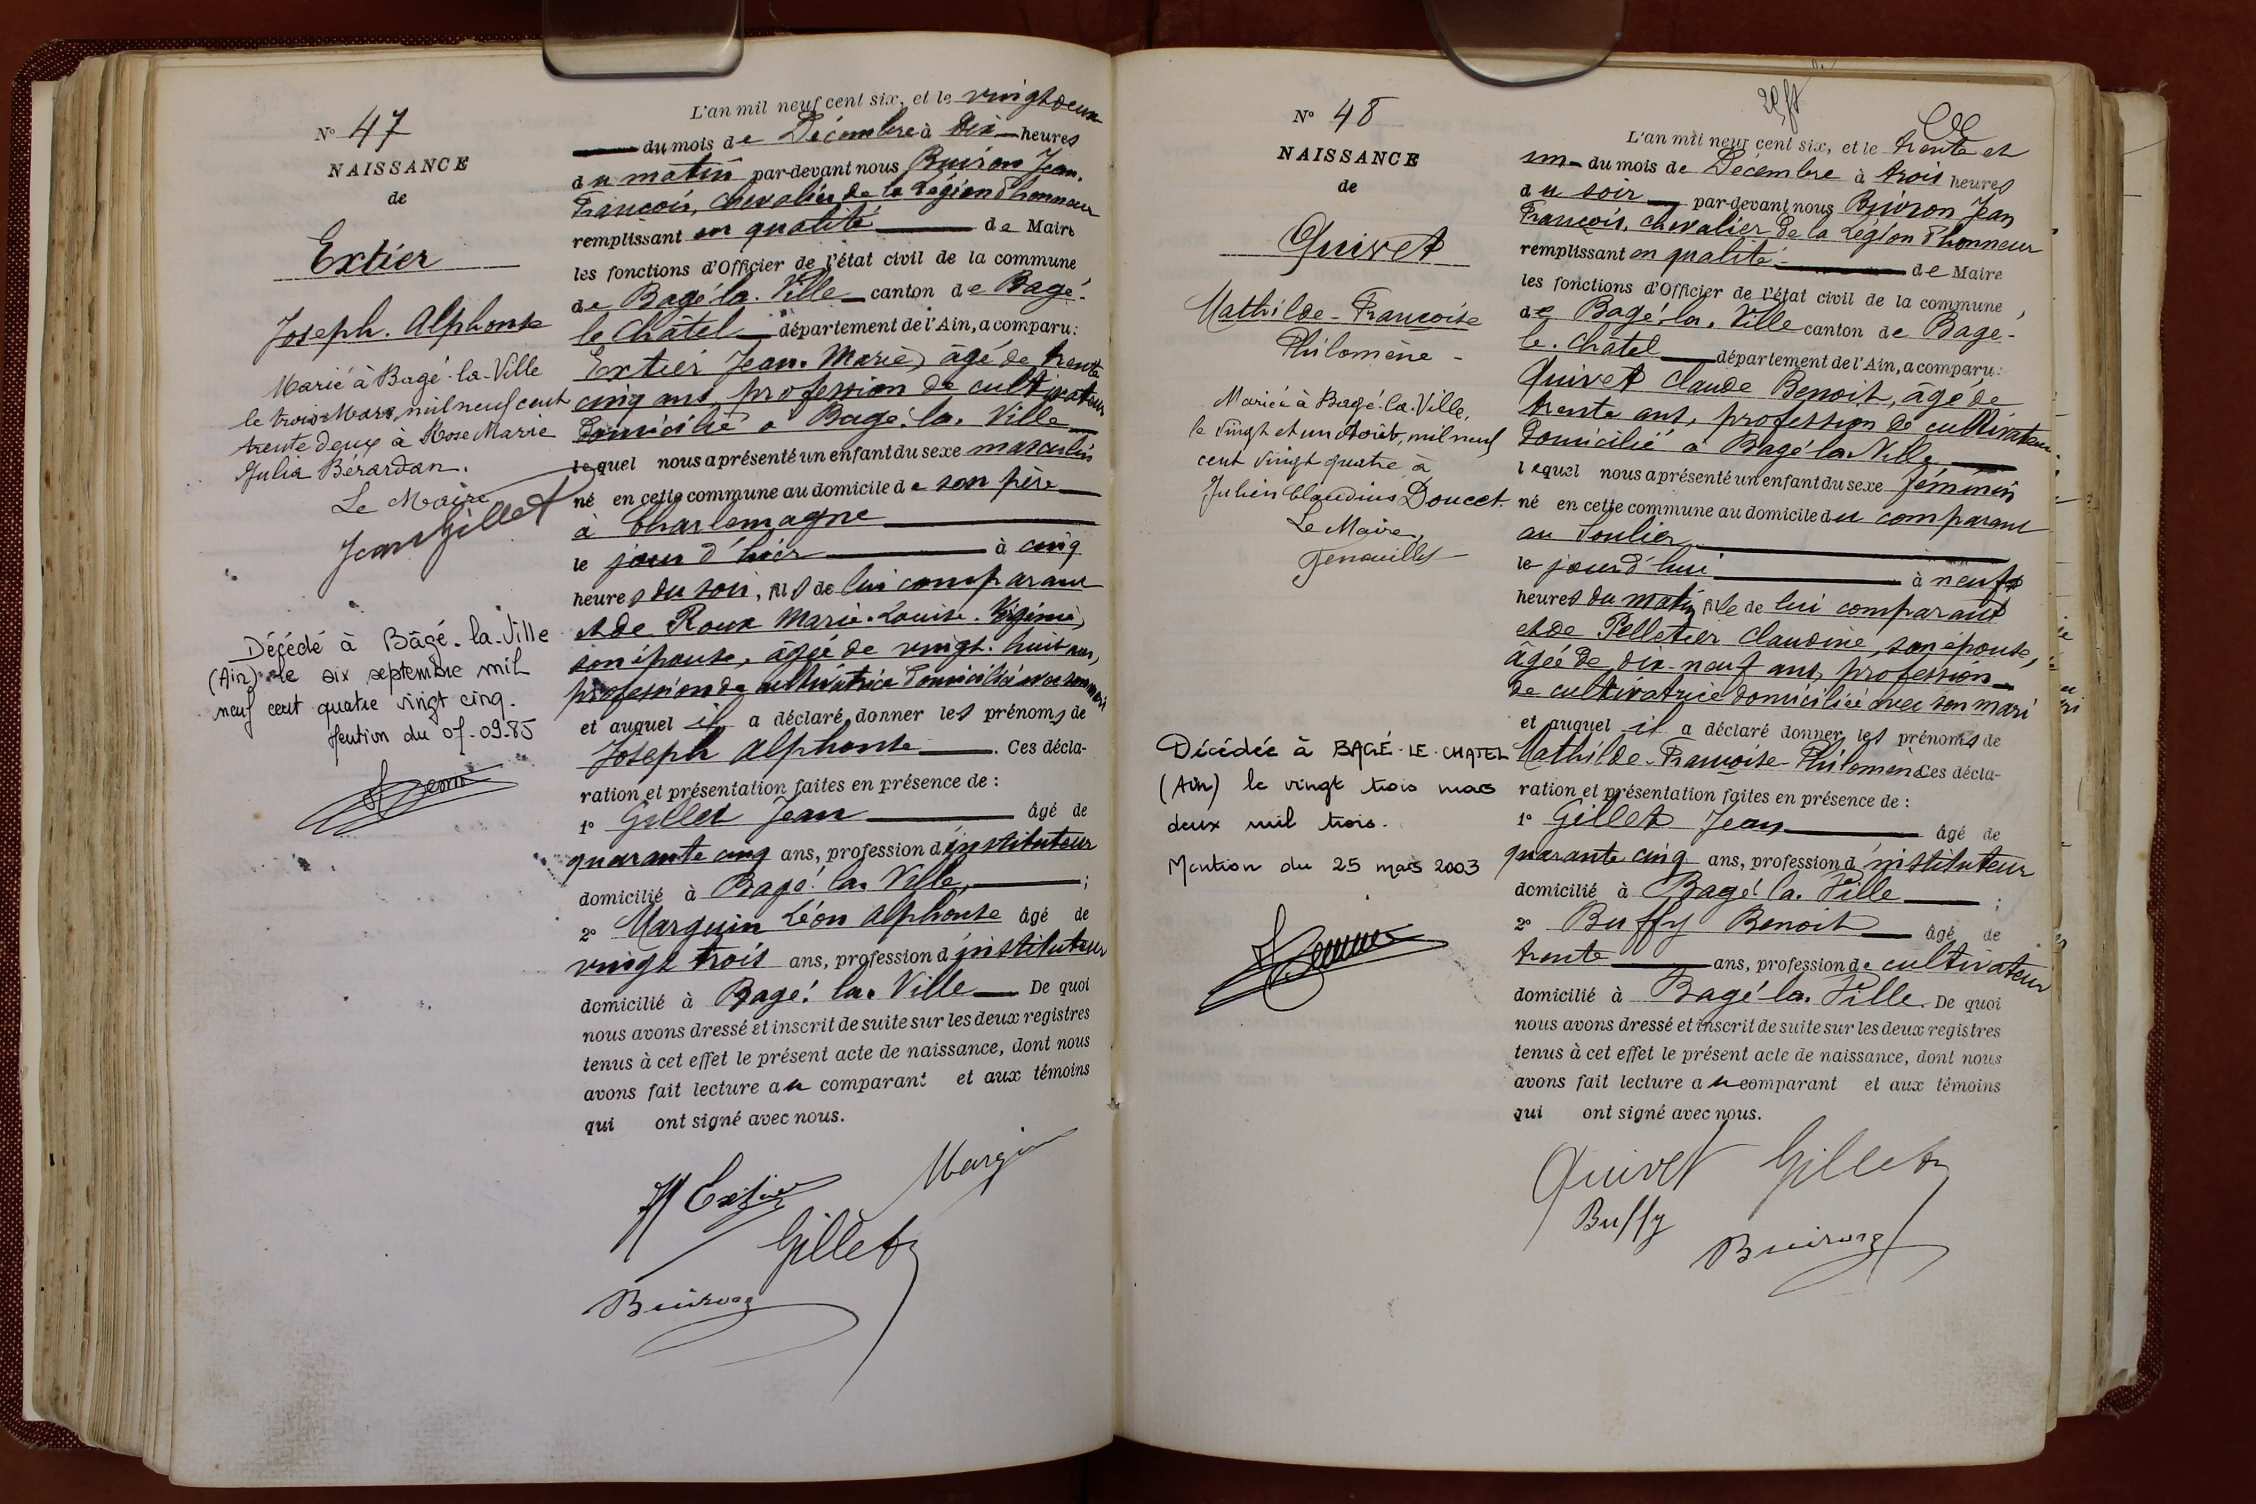 N° 47
NAISSANCE
de
Extier
Joseph. Alphonse
Marié à Bagé-la-Ville
le trois Mars, mil neuf cent
trente deux à Rose Marie
Julia Bérardan.
Le Maire
Jean Gillet
Décédé à Bâgé-la-Ville
(Ain) le six septembre mil
neuf cent quatre vingt cinq.
Mention du 07-09-85
L'an mil neuf cent six, et le vingt deux
du mois de Décembre à dix heures
du matin par-devant nous Buiron Jean.
François, chevalier de la Légion d'honneur
remplissant en qualité de Maire
les fonctions d'Officier de l'état civil de la commune
de Bagé-la-Ville canton de Bagé-
le Châtel département de l'Ain, a comparu:
Extier Jean. Marie, âgé de trente
cinq ans, profession de cultivateur
domicilié à Bagé-la-Ville
lequel nous a présenté un enfant du sexe masculin
né en cette commune au domicile de son père
à Charlemagne
le jour d'hier à cinq
heures du soir, fils de lui comparant
et de Roux Marie. Louise. Virginie,
son épouse, âgée de vingt. huit ans,
profession de cultivatrice domiciliée avec son mari
et auquel il a déclaré donner les prénoms de
Joseph Alphonse. Ces décla-
ration et présentation faites en présence de :
1° Gillet Jean âgé de
quarante cinq ans, profession d'instituteur
domicilié à Bagé-la-Ville ;
2° Marguin Léon Alphonse âgé de
vingt trois ans, profession d'instituteur
domicilié à Bagé-la-Ville De quoi
nous avons dressé et inscrit de suite sur les deux registres
tenus à cet effet le présent acte de naissance, dont nous
avons fait lecture au comparant et aux témoins
qui ont signé avec nous.
Extier
Gillet
Buiron
N° 48
NAISSANCE
de
Quivet
Mathilde-Françoise
Philomène -
Mariée à Bagé-la-Ville,
le vingt et un Août, mil neuf
cent vingt quatre à
Julien Claudius Doucet.
Le Maire,
Décédée à BAGÉ-LE-CHATEL
(Ain) le vingt trois mars
deux mil trois.
Mention du 25 mars 2003
L'an mil neuf cent six, et le trente et
un du mois de Décembre à trois heures
du soir par-devant nous Buiron Jean
François, chevalier de la Légion d'honneur
remplissant en qualité de Maire
les fonctions d'Officier de l'état civil de la commune
de Bagé-la-Ville canton de Bagé-
le. Châtel département de l'Ain, a comparu:
Quivet Claude Benoit, âgé de
trente ans, profession de cultivateur
domicilié à Bagé-la-Ville
lequel nous a présenté un enfant du sexe féminin
né en cette commune au domicile du comparant
au Soulier
le jourd'hui à neuf
heures du matin, fille de lui comparant
et de Pelletier Claudine, son épouse,
âgée de dix-neuf ans, profession
de cultivatrice domiciliée avec son mari
et auquel il a déclaré donner les prénoms de
Mathilde-Françoise Philomène Ces décla-
ration et présentation faites en présence de :
1° Gillet Jean âgé de
quarante cinq ans, profession d'instituteur
domicilié à Bagé-la-Ville ;
2° Buffy Benoit âgé de
trente ans, profession de cultivateur
domicilié à Bagé-la-Ville. De quoi
nous avons dressé et inscrit de suite sur les deux registres
tenus à cet effet le présent acte de naissance, dont nous
avons fait lecture au comparant et aux témoins
qui ont signé avec nous.
Quivet Gillet
Buffy
Buiron